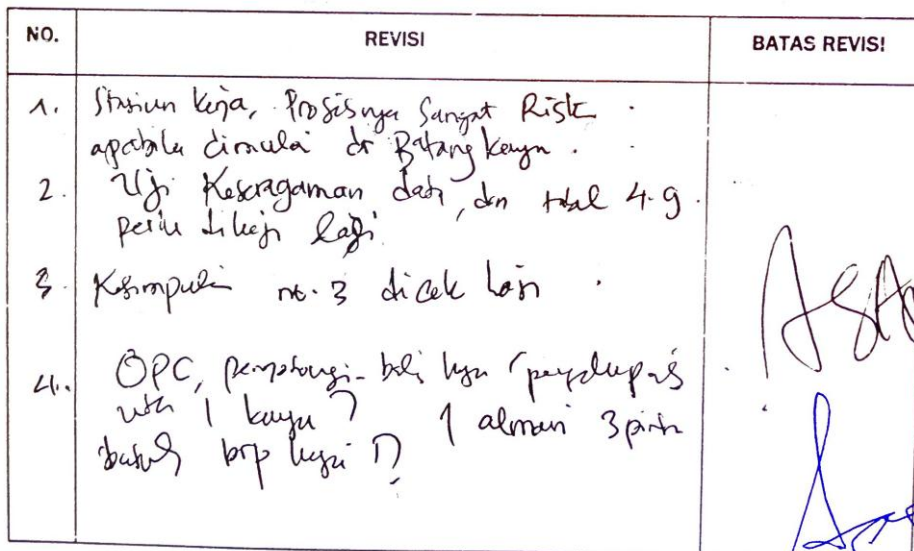 NO. REVISI BATAS REVISI
1. Stasiun Kerja, Prosesnya Sangat Risk.
apabila dimulai dr Batang kayu.
2. Uji Keseragaman data, dan 4.9
perlu dikaji lagi
3. Kesimpulan no. 3 dicek lagi.
4. OPC, kayu
1 kayu? 1 almari 3 pintu
butuh brp kayu?